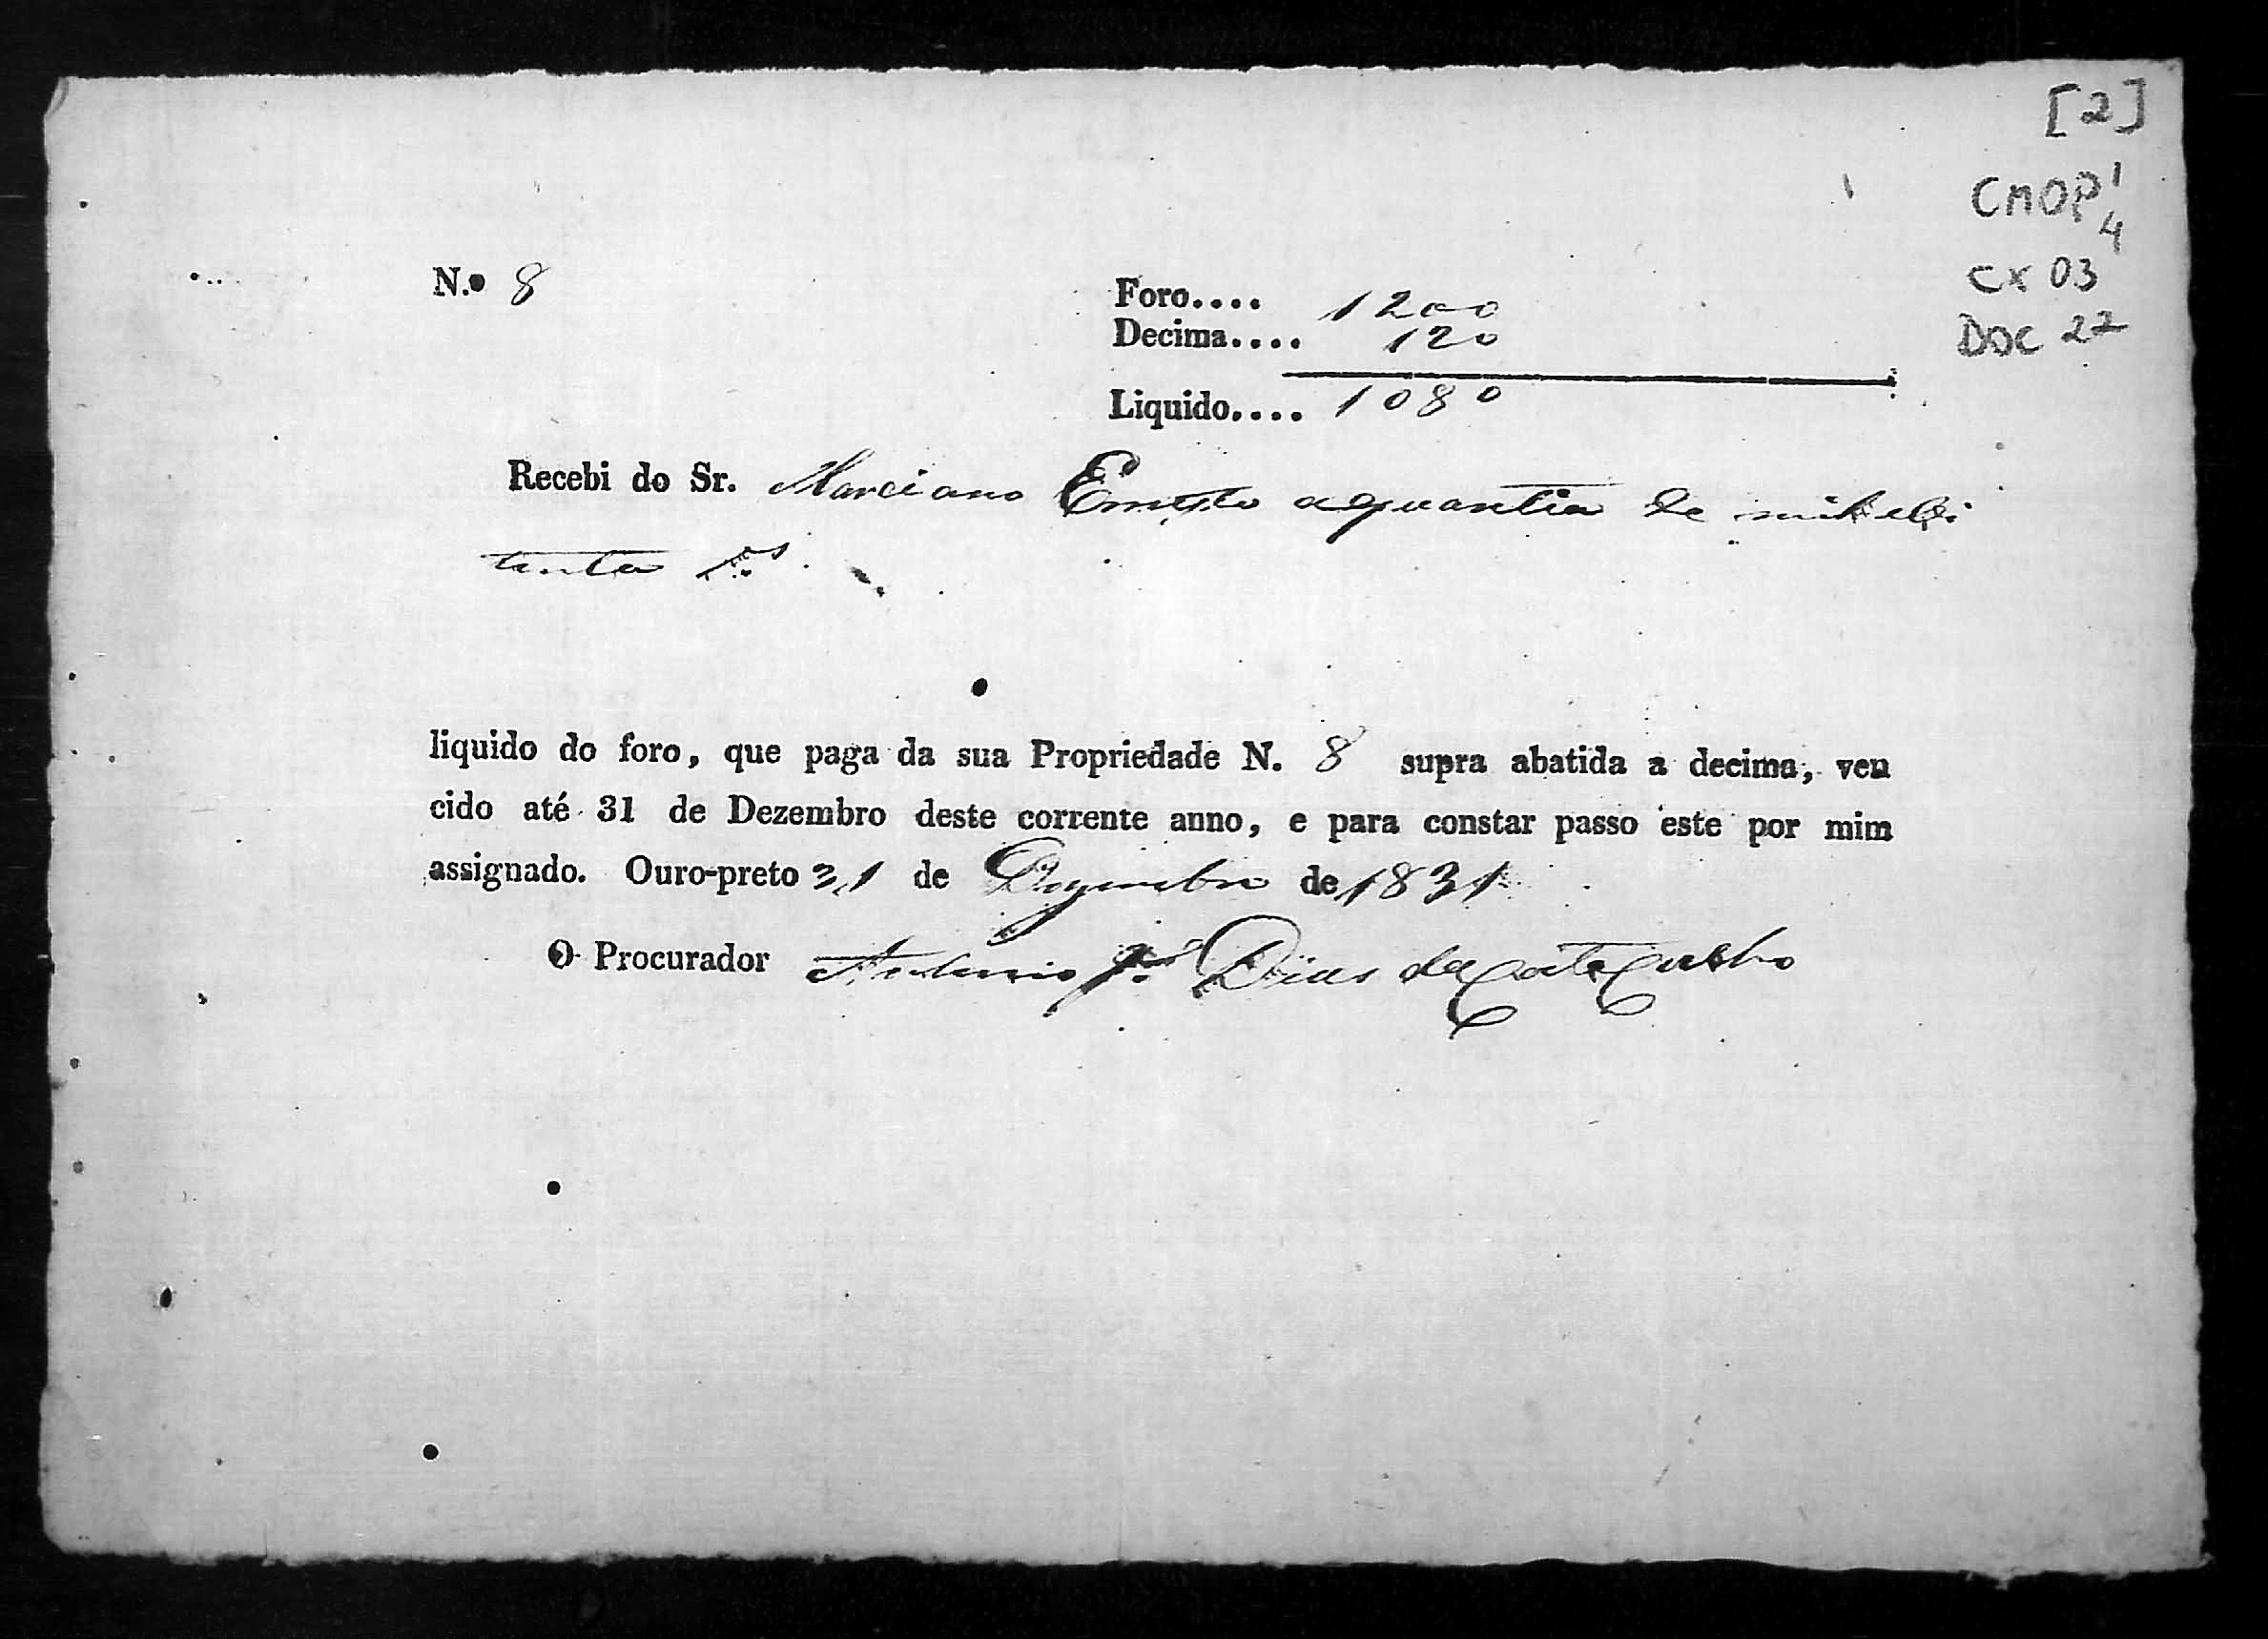 [2]
CMOP 1/4
CX 03
DOC 27
N.º 8
Foro.... 1200
Decima.... 120
Liquido.... 1080
Recebi do Sr. Marciano Ernesto aquantia de mil e oi
tenta r.s
liquido do foro, que paga da sua Propriedade N. 8 supra abatida a decima, ven
cido até 31 de Dezembro deste corrente anno, e para constar passo este por mim
assignado. Ouro-preto 31 de Dezembro de 1831
O Procurador Antonio Dias da